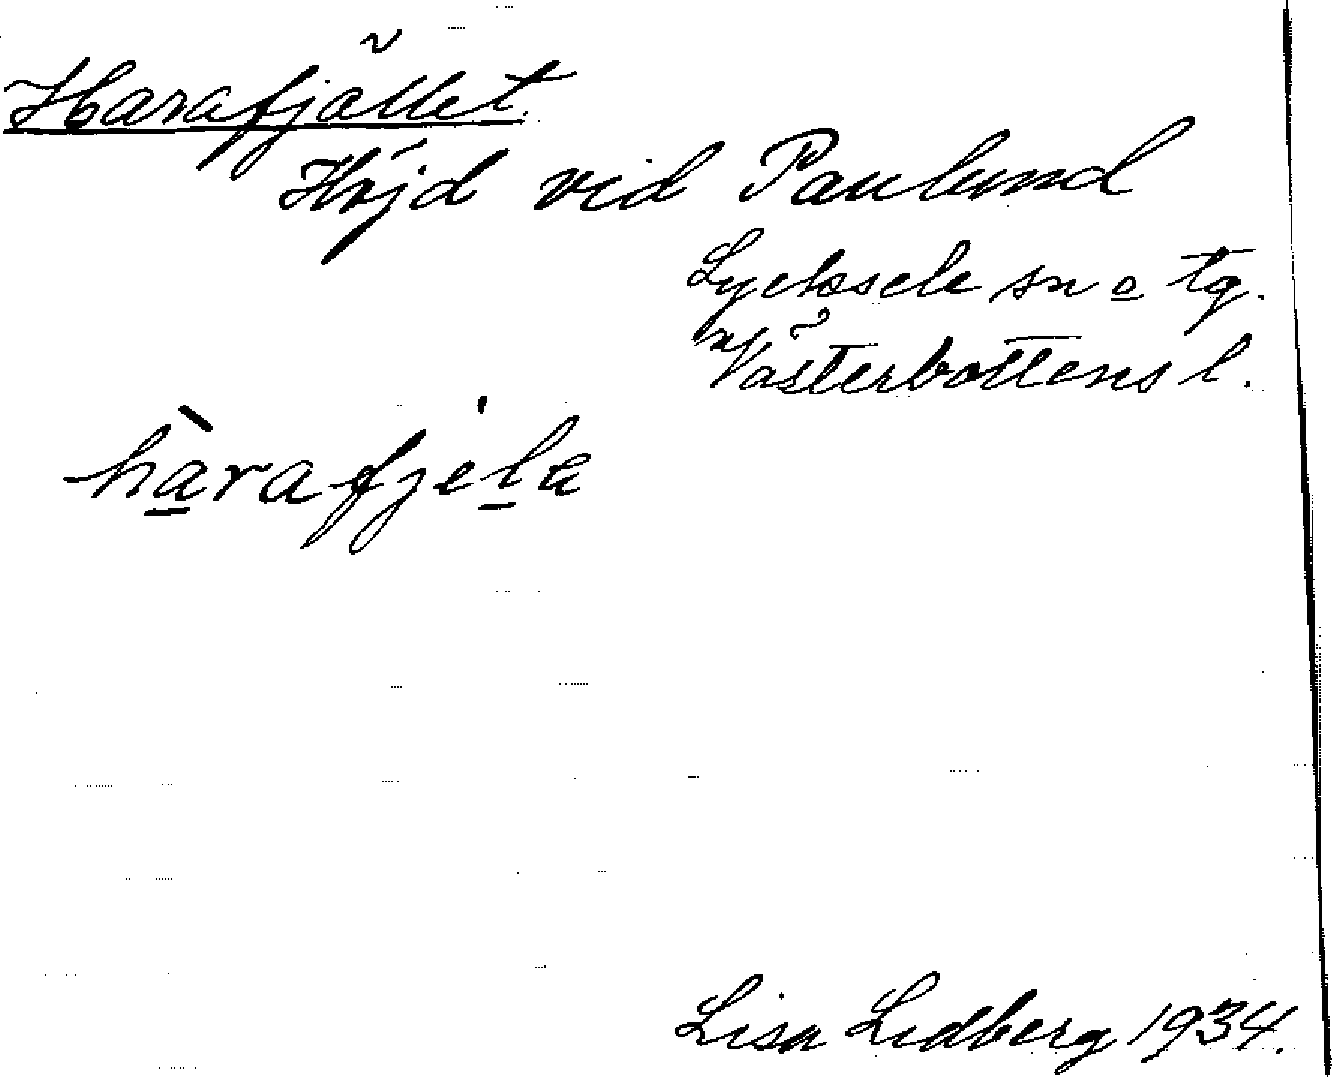 Harafjället.
Höjd vid Paulund
Lycksele sn o tg.
Västerbottens l.
hàrafjela
Lisa Lidberg 1934.